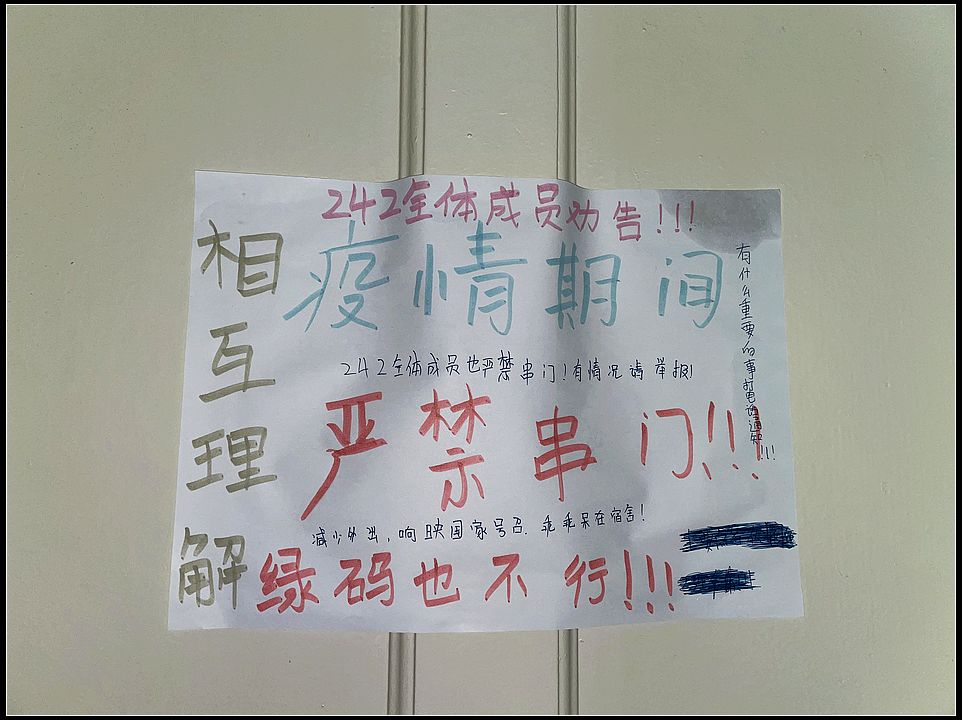 242全体成员劝告!!!
疫情期间
242全体成员也严禁串门!有情况请举报!
严禁串门!!!
减少外出,响映国家号召.乖乖呆在宿舍!
绿码也不行!!!
相互理解
有什么重要的事打電话通知!!!